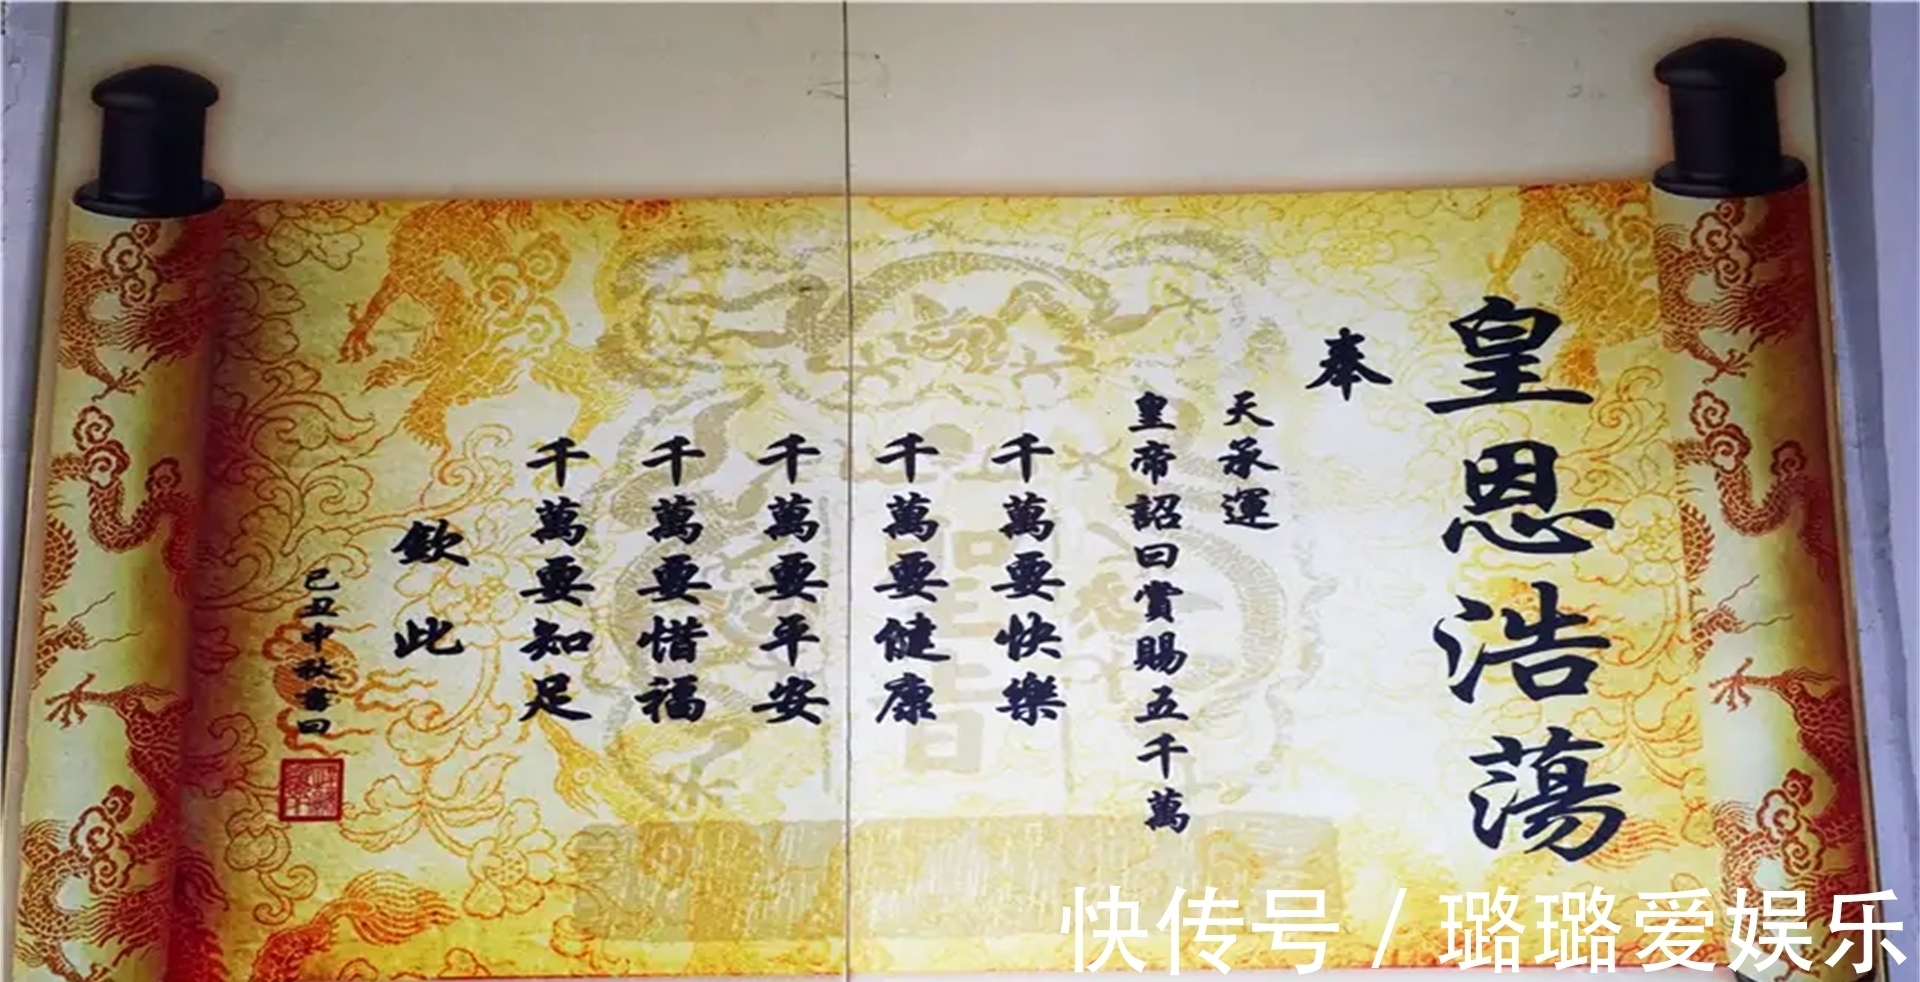 皇恩浩蕩
奉
天承運
皇帝詔曰賞賜五千萬
千萬要快樂
千萬要健康
千萬要平安
千萬要惜福
千萬要知足
欽此
己丑中秋書曰
快传号/璐璐爱娱乐